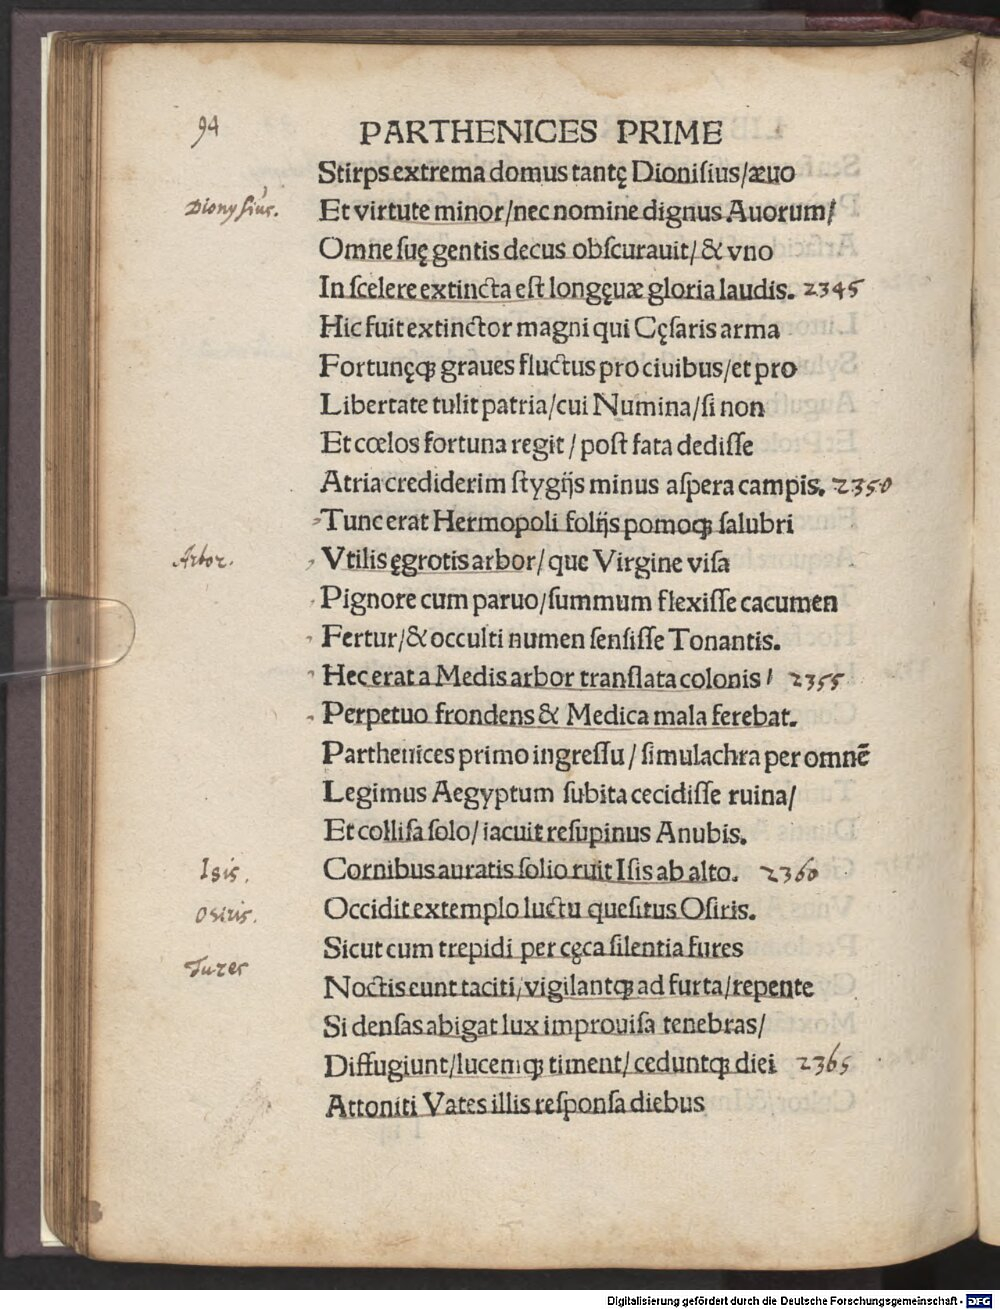 94
PARTHENICES PRIME
Stirps extrema domus tantę Dionisius/æuo
Dionysius.
Et virtute minor/nec nomine dignus Auorum/
Omne suę gentis decus obscurauit/& vno
In scelere extincta est longęuæ gloria laudis. 2345
Hic fuit extinctor magni qui Cęsaris arma
Fortunęqꝫ graues fluctus pro ciuibus/et pro
Libertate tulit patria/cui Numina/si non
Et cœlos fortuna regit / post fata dedisse
Atria crediderim stygijs minus aspera campis. 2350
Tunc erat Hermopoli folijs pomoqꝫ salubri
Arbor.
Vtilis ęgrotis arbor/que Virgine visa
Pignore cum paruo/summum flexisse cacumen
Fertur/& occulti numen sensisse Tonantis.
Hec erat a Medis arbor translata colonis / 2355
Perpetuo frondens & Medica mala ferebat.
Parthenices primo ingressu / simulachra per omnē
Legimus Aegyptum subita cecidisse ruina/
Et collisa solo/iacuit resupinus Anubis.
Isis.
Cornibus auratis solio ruit Isis ab alto. 2360
Osiris.
Occidit extemplo luctu quesitus Osiris.
Sicut cum trepidi per cęca silentia fures
Fures
Noctis eunt taciti/vigilantqꝫ ad furta/repente
Si densas abigat lux improuisa tenebras/
Diffugiunt/lucemqꝫ timent/ceduntqꝫ diei 2365
Attoniti Vates illis responsa diebus
Digitalisierung gefördert durch die Deutsche Forschungsgemeinschaft - DFG